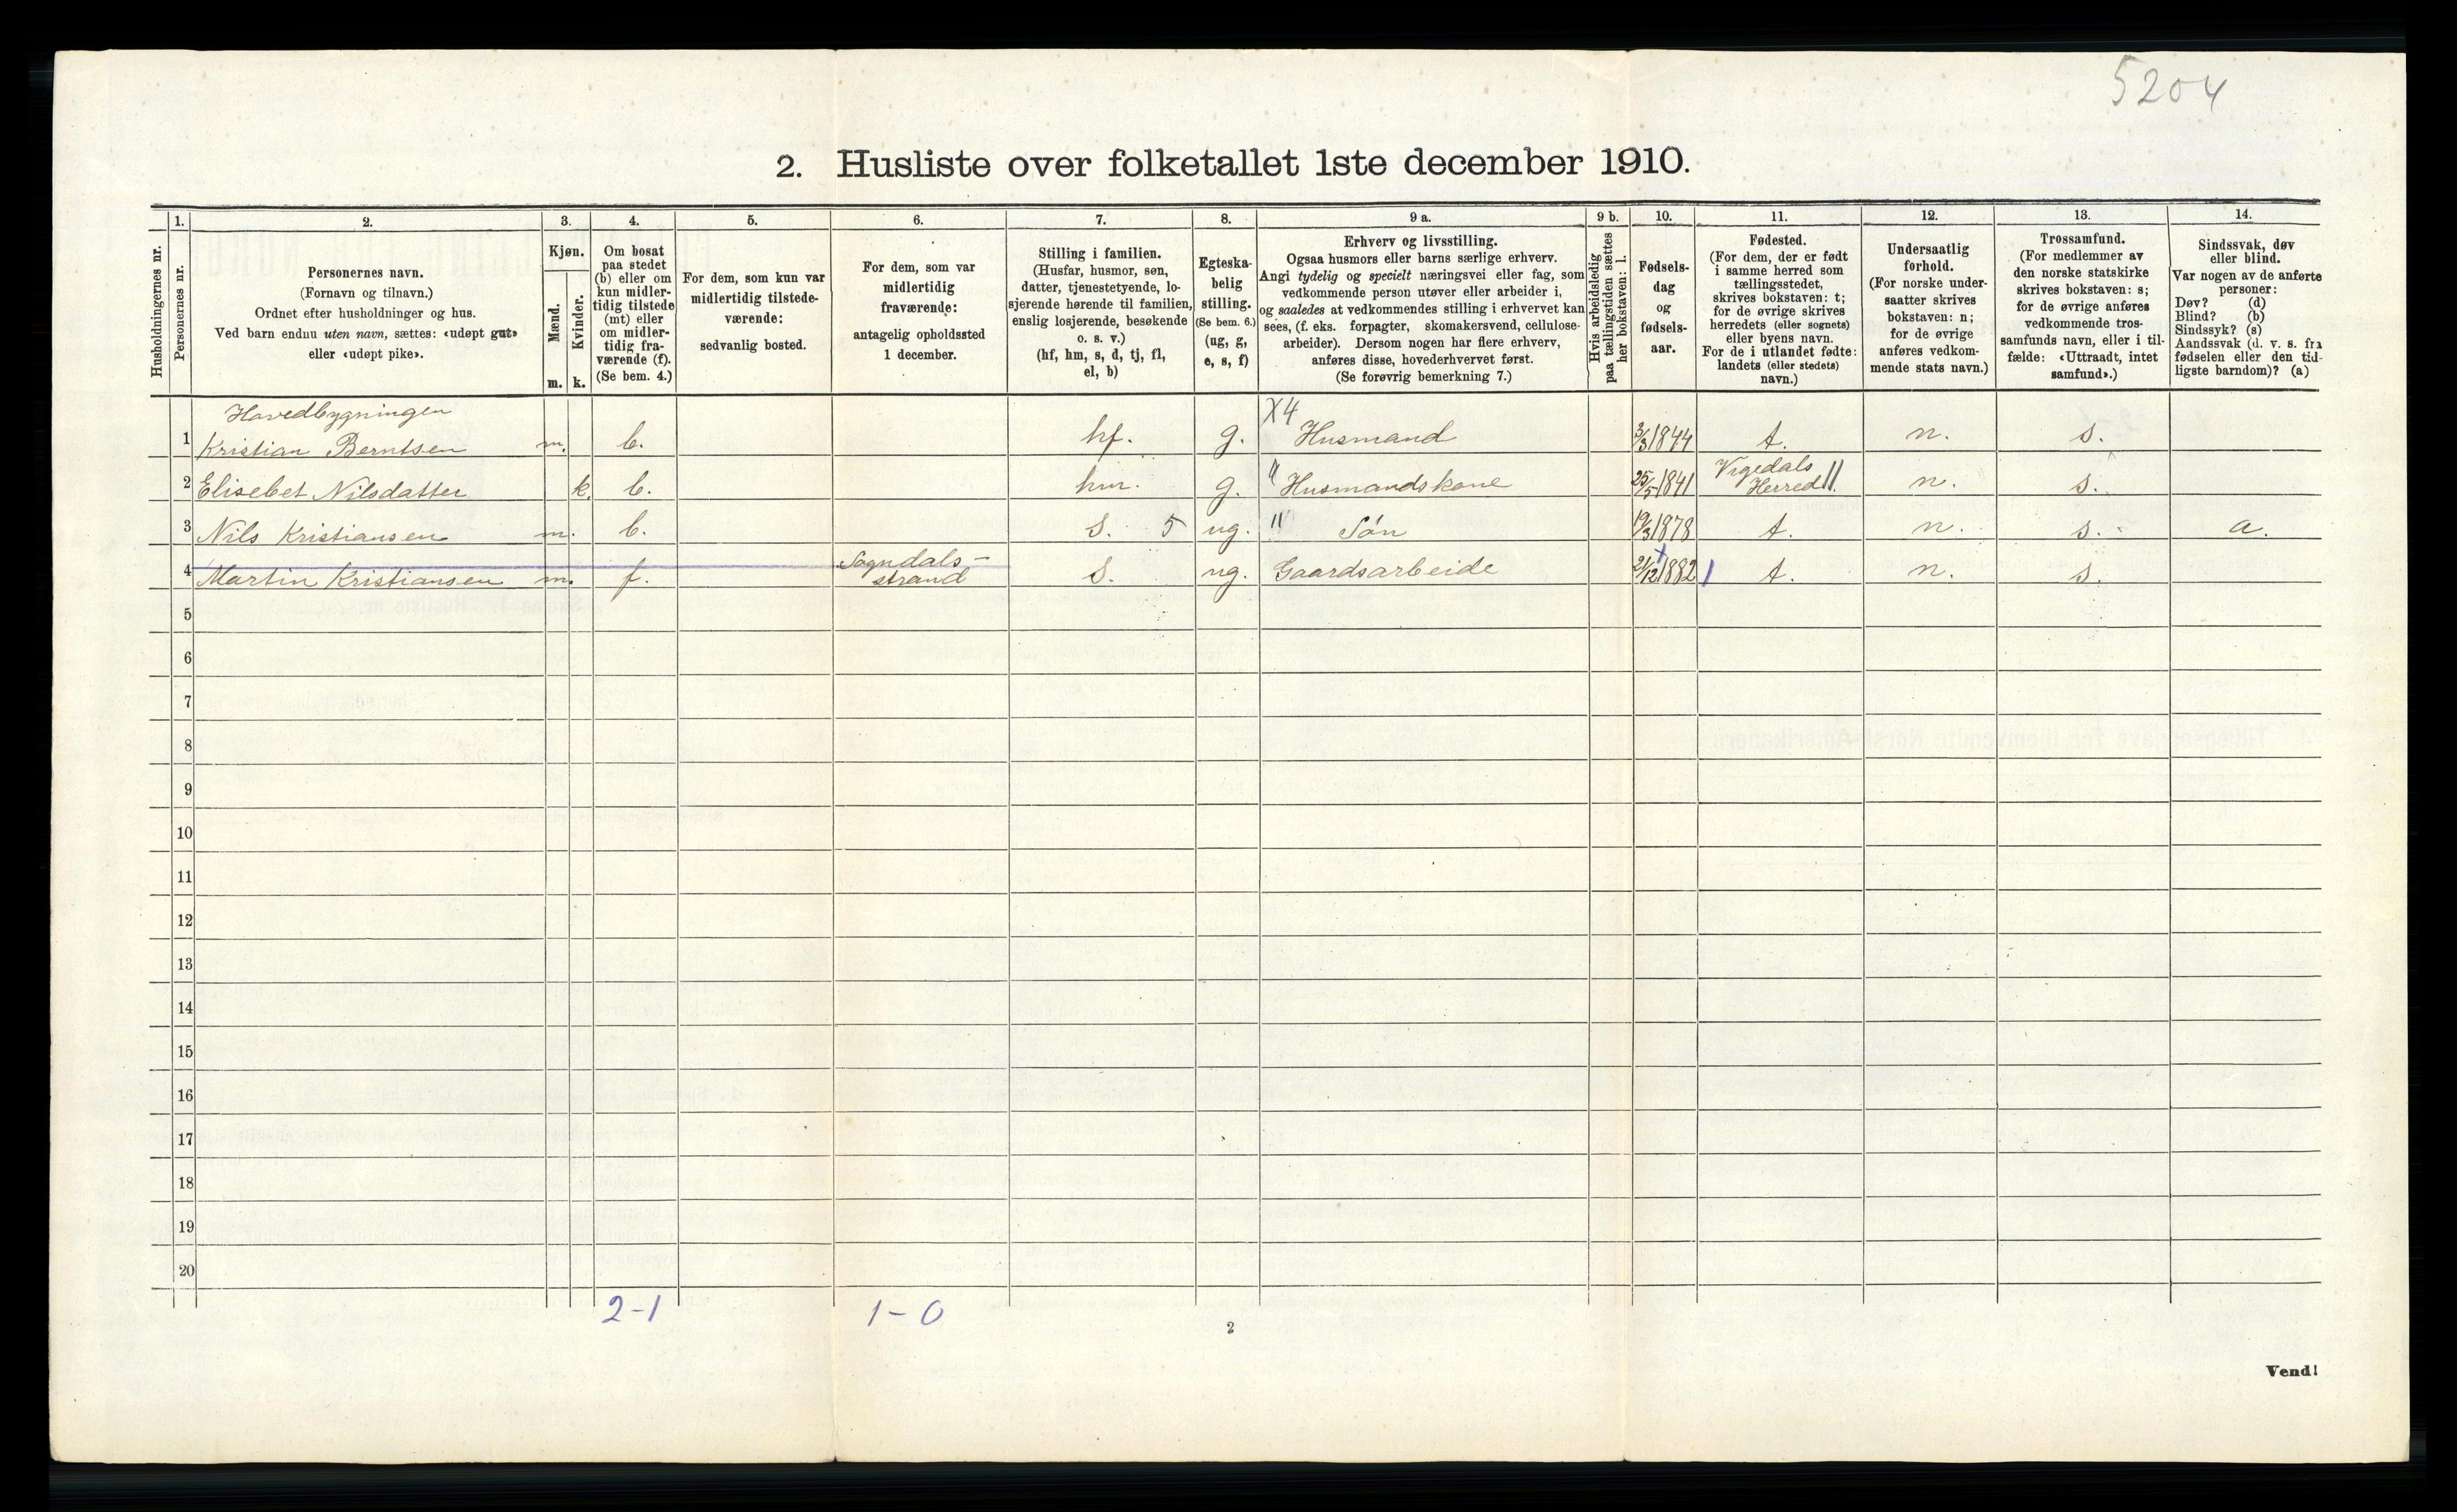 5204
2. Husliste over folketallet 1ste december 1910.
Husholdningernes nr.
1.
Personernes nr.
2.
Personernes navn.
(Fornavn og tilnavn.)
Ordnet efter husholdninger og hus.
Ved barn endnu uten navn, sættes: «udøpt gut»
eller «udøpt pike».
3.
Kjøn.
Mænd.
m.
Kvinder.
k.
4.
Om bosat
paa stedet
(b) eller om
kun midler-
tidig tilstede
(mt) eller
om midler-
tidig fra-
værende (f).
(Se bem. 4.)
5.
For dem, som kun var
midlertidig tilstede-
værende:
sedvanlig bosted.
6.
For dem, som var
midlertidig
fraværende:
antagelig opholdssted
1 december.
7.
Stilling i familien.
(Husfar, husmor, søn,
datter, tjenestetyende, lo-
sjerende hørende til familien,
enslig losjerende, besøkende
o. s. v.)
(hf, hm, s, d, tj, fl,
el, b)
8.
Egteska-
belig
stilling.
(Se bem. 6.)
(ug, g,
e, s, f)
9 a.
Erhverv og livsstilling.
Ogsaa husmors eller barns særlige erhverv.
Angi tydelig og specielt næringsvei eller fag, som
vedkommende person utøver eller arbeider i,
og saaledes at vedkommendes stilling i erhvervet kan
sees, (f. eks. forpagter, skomakersvend, cellulose-
arbeider). Dersom nogen har flere erhverv,
anføres disse, hovederhvervet først.
(Se forøvrig bemerkning 7.)
9 b.
Hvis arbeidsledig
paa tællingstiden sættes
her bokstaven: l.
10.
Fødsels-
dag
og
fødsels-
aar.
11.
Fødested.
(For dem, der er født
i samme herred som
tællingsstedet,
skrives bokstaven: t;
for de øvrige skrives
herredets (eller sognets)
eller byens navn.
For de i utlandet fødte:
landets (eller stedets)
navn.)
12.
Undersaatlig
forhold.
(For norske under-
saatter skrives
bokstaven: n;
for de øvrige
anføres vedkom-
mende stats navn.)
13.
Trossamfund.
(For medlemmer av
den norske statskirke
skrives bokstaven: s;
for de øvrige anføres
vedkommende tros-
samfunds navn, eller i til-
fælde: «Uttraadt, intet
samfund».)
14.
Sindssvak, døv
eller blind.
Var nogen av de anførte
personer:
Døv? (d)
Blind? (b)
Sindssyk? (s)
Aandssvak (d. v. s. fra
fødselen eller den tid-
ligste barndom)? (a)
Hovedbygningen
1 Kristian Berntsen m. b. hf. g. X4 Husmand 3/3 1844 t. n. s.
2 Elisebet Nilsdatter k. b. hm. g. " Husmandskone 25/5 1841 Vigedals Herred n. s.
3 Nils Kristiansen m. b. s. 5 ug. " Søn 19/3 1878 t. n. s. a.
4 Martin Kristiansen m. f. Sogndals-strand s. ug. Gaardsarbeide 21/12 1882 t. n. s.
5
6
7
8
9
10
11
12
13
14
15
16
17
18
19
20
2-1 1-0
2
Vend!